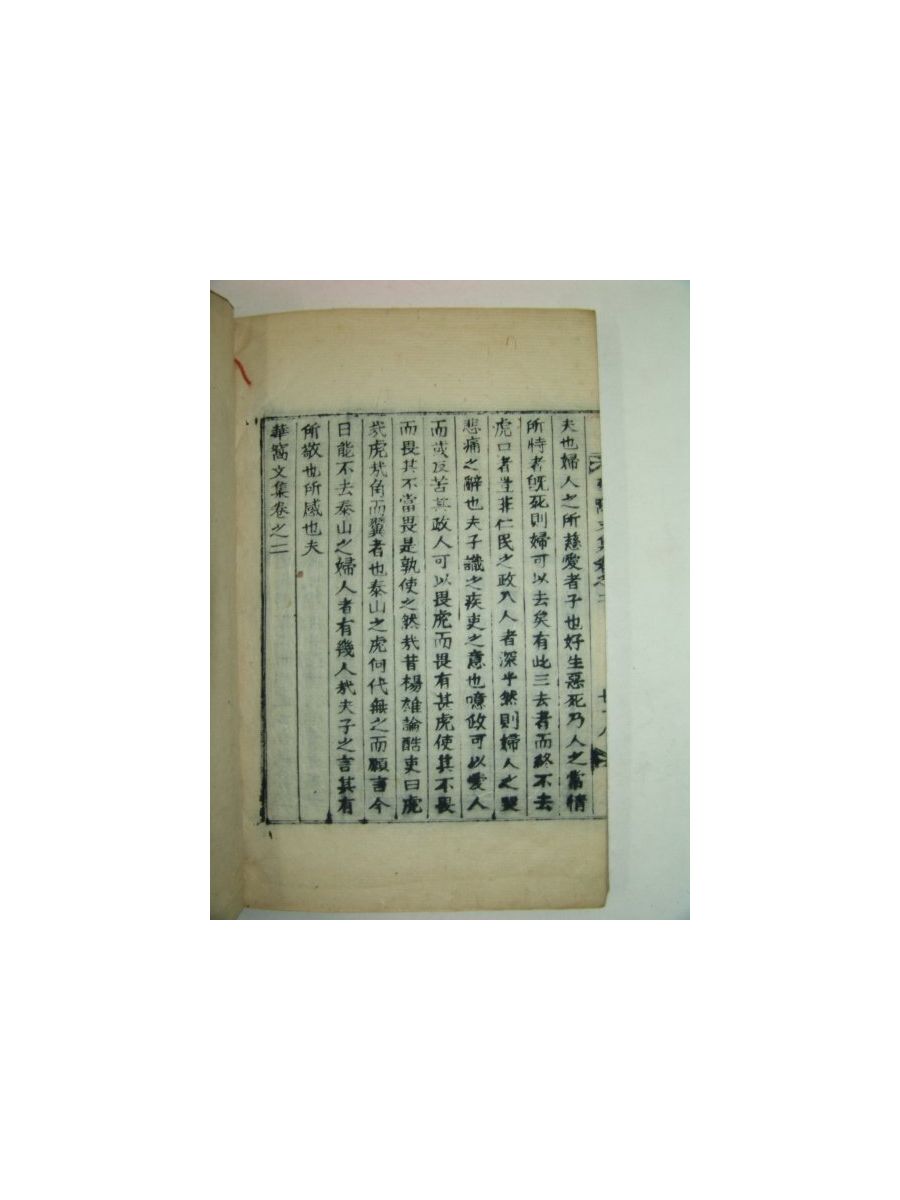 華窩文集卷之二
夫也婦人之所慈愛者子也好生惡死乃人之常情
所恃者旣死則婦可以去矣有此三去者而終不去
虎口者豈非仁民之政入人者深乎然則婦人之哭
悲痛之辭也夫子識之疾吏之意也噫政可以愛人
而或反苦其政人可以畏虎而畏有甚虎使其不畏
而畏其不當畏是孰使之然哉昔楊雄論酷吏曰虎
哉虎哉角而翼者也泰山之虎何代無之而願言今
日能不去泰山之婦人者有幾人哉夫子之言其有
所敬也所感也夫
華窩文集卷之二